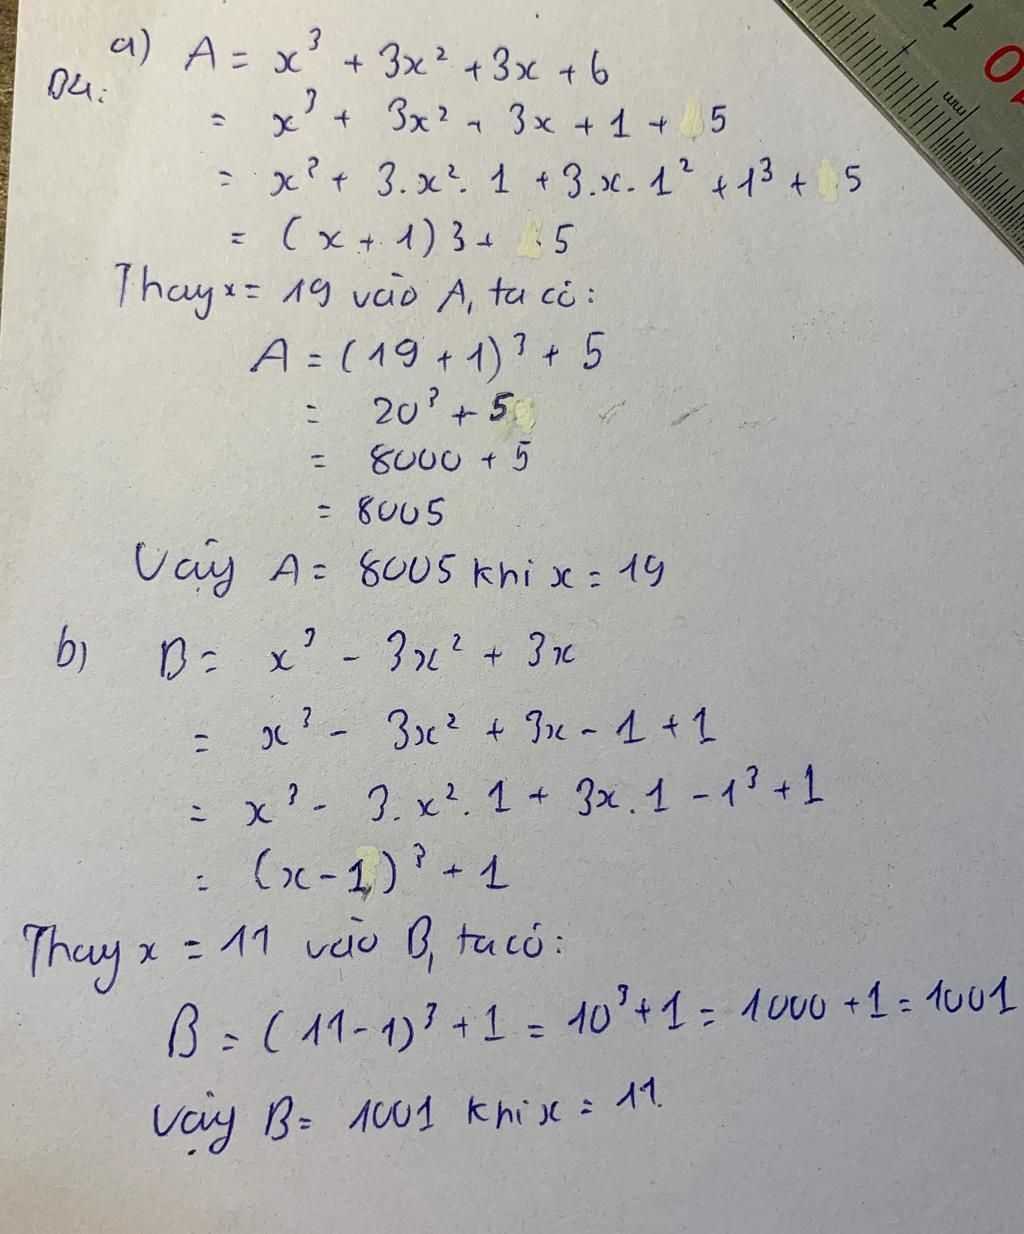 a) A = x³ + 3x² + 3x + 6
B4:
= x³ + 3x² + 3x + 1 + 5
= x³ + 3.x².1 + 3.x.1² + 1³ + 5
= (x + 1)3 + 5
Thay x = 19 vào A, ta có:
A = (19 + 1)³ + 5
= 20³ + 5
= 8000 + 5
= 8005
Vậy A = 8005 khi x = 19
b) B = x³ - 3x² + 3x
= x³ - 3x² + 3x - 1 + 1
= x³ - 3.x².1 + 3x.1 - 1³ + 1
= (x - 1)³ + 1
Thay x = 11 vào B, ta có:
B = (11 - 1)³ + 1 = 10³ + 1 = 1000 + 1 = 1001
Vậy B = 1001 khi x = 11.